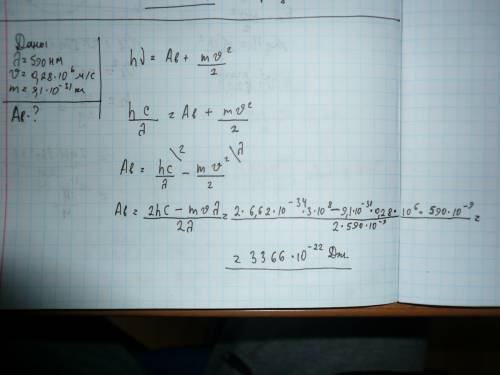 Дано:
λ = 590 нм
v = 0,28·10⁶ м/с
m = 9,1·10⁻³¹ кг
Ав - ?
hν = Ав + mv²/2
hc/λ = Ав + mv²/2
Ав = hc/λ \2 - mv²/2 \λ
Ав = (2hc - mvλ)/2λ = (2·6,62·10⁻³⁴·3·10⁸ - 9,1·10⁻³¹·0,28·10⁶·590·10⁻⁹)/(2·590·10⁻⁹) =
= 3366·10⁻²² Дж.